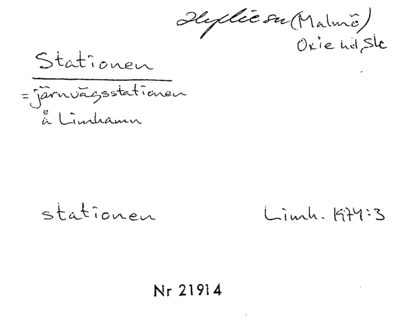 Hyllie sn (Malmö)
Oxie hd, Sk
Stationen
= järnvägsstationen
å Limhamn
stationen Limh. 1974:3
Nr 21914